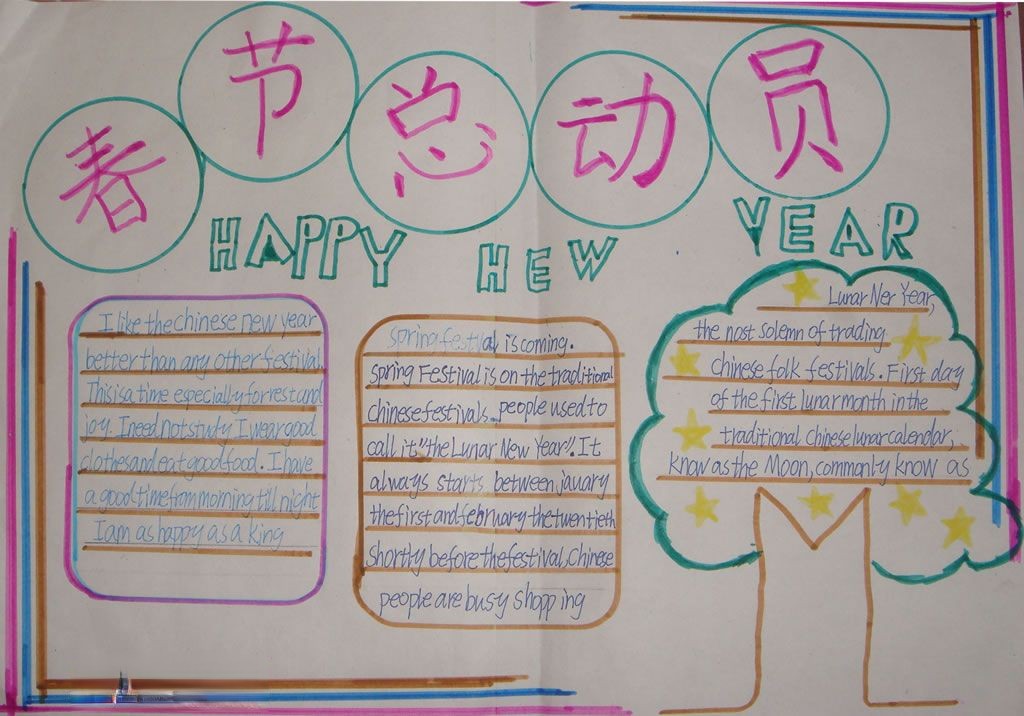 春节总动员
HAPPY HEW YEAR
I like the chinese new year
better than any other festival.
This is a time especially for rest and
joy. I need not study. I wear good
clothes and eat good food. I have
a good time from morning till night
I am as happy as a king
spring festival is coming.
spring Festival is on the traditional
chinese festivals. people used to
call it "the Lunar New Year". It
always starts between january
the first and february the twentieth
shortly before the festival, Chinese
people are busy shopping
Lunar Ner Year,
the nost solemn of trading
chinese folk festivals. First day
of the first lunar month in the
traditional chinese lunar calendar,
know as the Moon, commonly know as